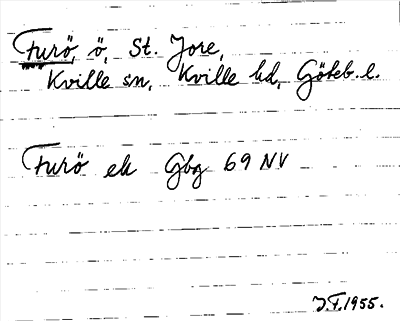 Furö, ö, St. Jore,
Kville sn, Kville hd, Göteb. l.
Furö ek Gbg 69 NV
J.T. 1955.